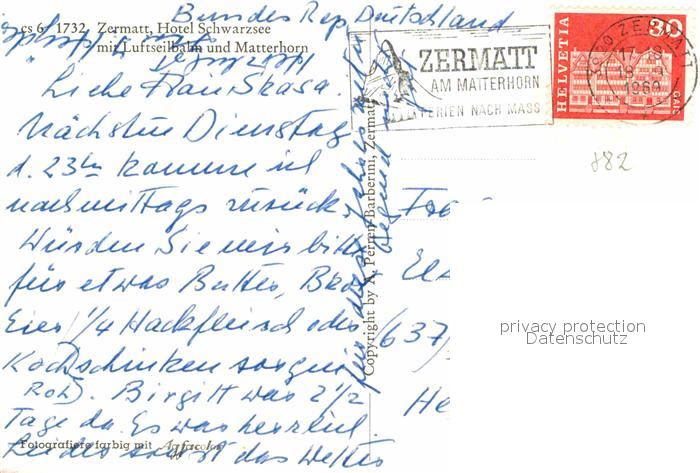 Bundes Rep. Deutschland
cs 6 1732 Zermatt, Hotel Schwarzsee
mit Luftseilbahn und Matterhorn
Liebe Frau Skasa.
Nächsten Dienstag
d. 23ten komme ich
nachmittags zurück.
Würden Sie mir bitte
für etwas Butter, Brot
Eier, 1/4 Hackfleisch oder
Kochschinken sorgen
Roh). Birgitt war 2 1/2
Tage da. Es war herrlich.
Leider sonst das Wetter
Fotografiere farbig mit Agfacolor
Copyright by A. Perren-Barberini, Zermatt
ZERMATT
AM MATTERHORN
FERIEN NACH MASS
3920 ZERMATT
1969
HELVETIA
30
GAIS
882
Fra
(637
He
privacy protection
Datenschutz